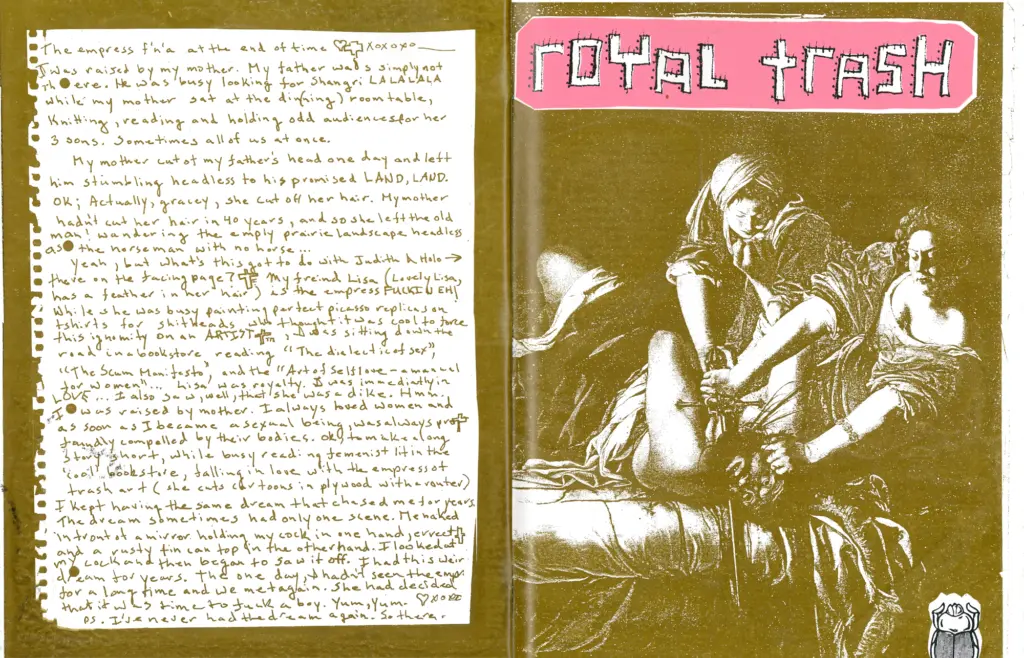 The empress f'n'a at the end of time ♡✚ xoxoxo
I was raised by my mother. My father was simply not
there. He was busy looking for Shangri LALALALA
while my mother sat at the din(ning) room table,
Knitting, reading and holding odd audiences for her
3 sons. Sometimes all of us at once.
My mother cut of my father's head one day and left
him stumbling headless to his promised LAND, LAND.
OK; Actually, gracey, she cut off her hair. My mother
hadn't cut her hair in 40 years, and so she left the old
man! wandering the empty prairie landscape headless
as the horseman with no horse...
Yeah, but what's this got to do with Judith & Holo →
there on the facing page? ✚ My freind Lisa (Lovely Lisa,
has a feather in her hair) is the empress FUCKIN EH!
While she was busy painting perfect picasso replicas on
tshirts for shitheads who thought it was cool to force
this ignimity on an ARTIST, I was sitting down the
road in a bookstore reading "The dielectic of sex",
"The Scum Manifesto", and the "Art of Selflove - a manual
for women"... Lisa was royalty. I was immediatly in
LOVE... I also saw, well, that she was a dike. Hmm.
I was raised by mother. I always loved women and
as soon as I became a sexual being, was always pro
foundly compelled by their bodies. Ok, to make a long
story short, while busy reading femenist lit in the
'cool' bookstore, falling in love with the empress of
trash art (she cuts cartoons in plywood with a router)
I kept having the same dream that chased me for years.
The dream sometimes had only one scene. Me naked
in front of a mirror holding my cock in one hand, errect
and a rusty tin can top in the other hand. I looked at
my cock and then began to saw it off. I had this weir
dream for years. The one day, I hadn't seen the empr
for a long time and we met again. She had decided
that it was time to fuck a boy. Yum, Yum. ♡xoxo
ps. I've never had the dream again. So there.
ROYAL TRASH